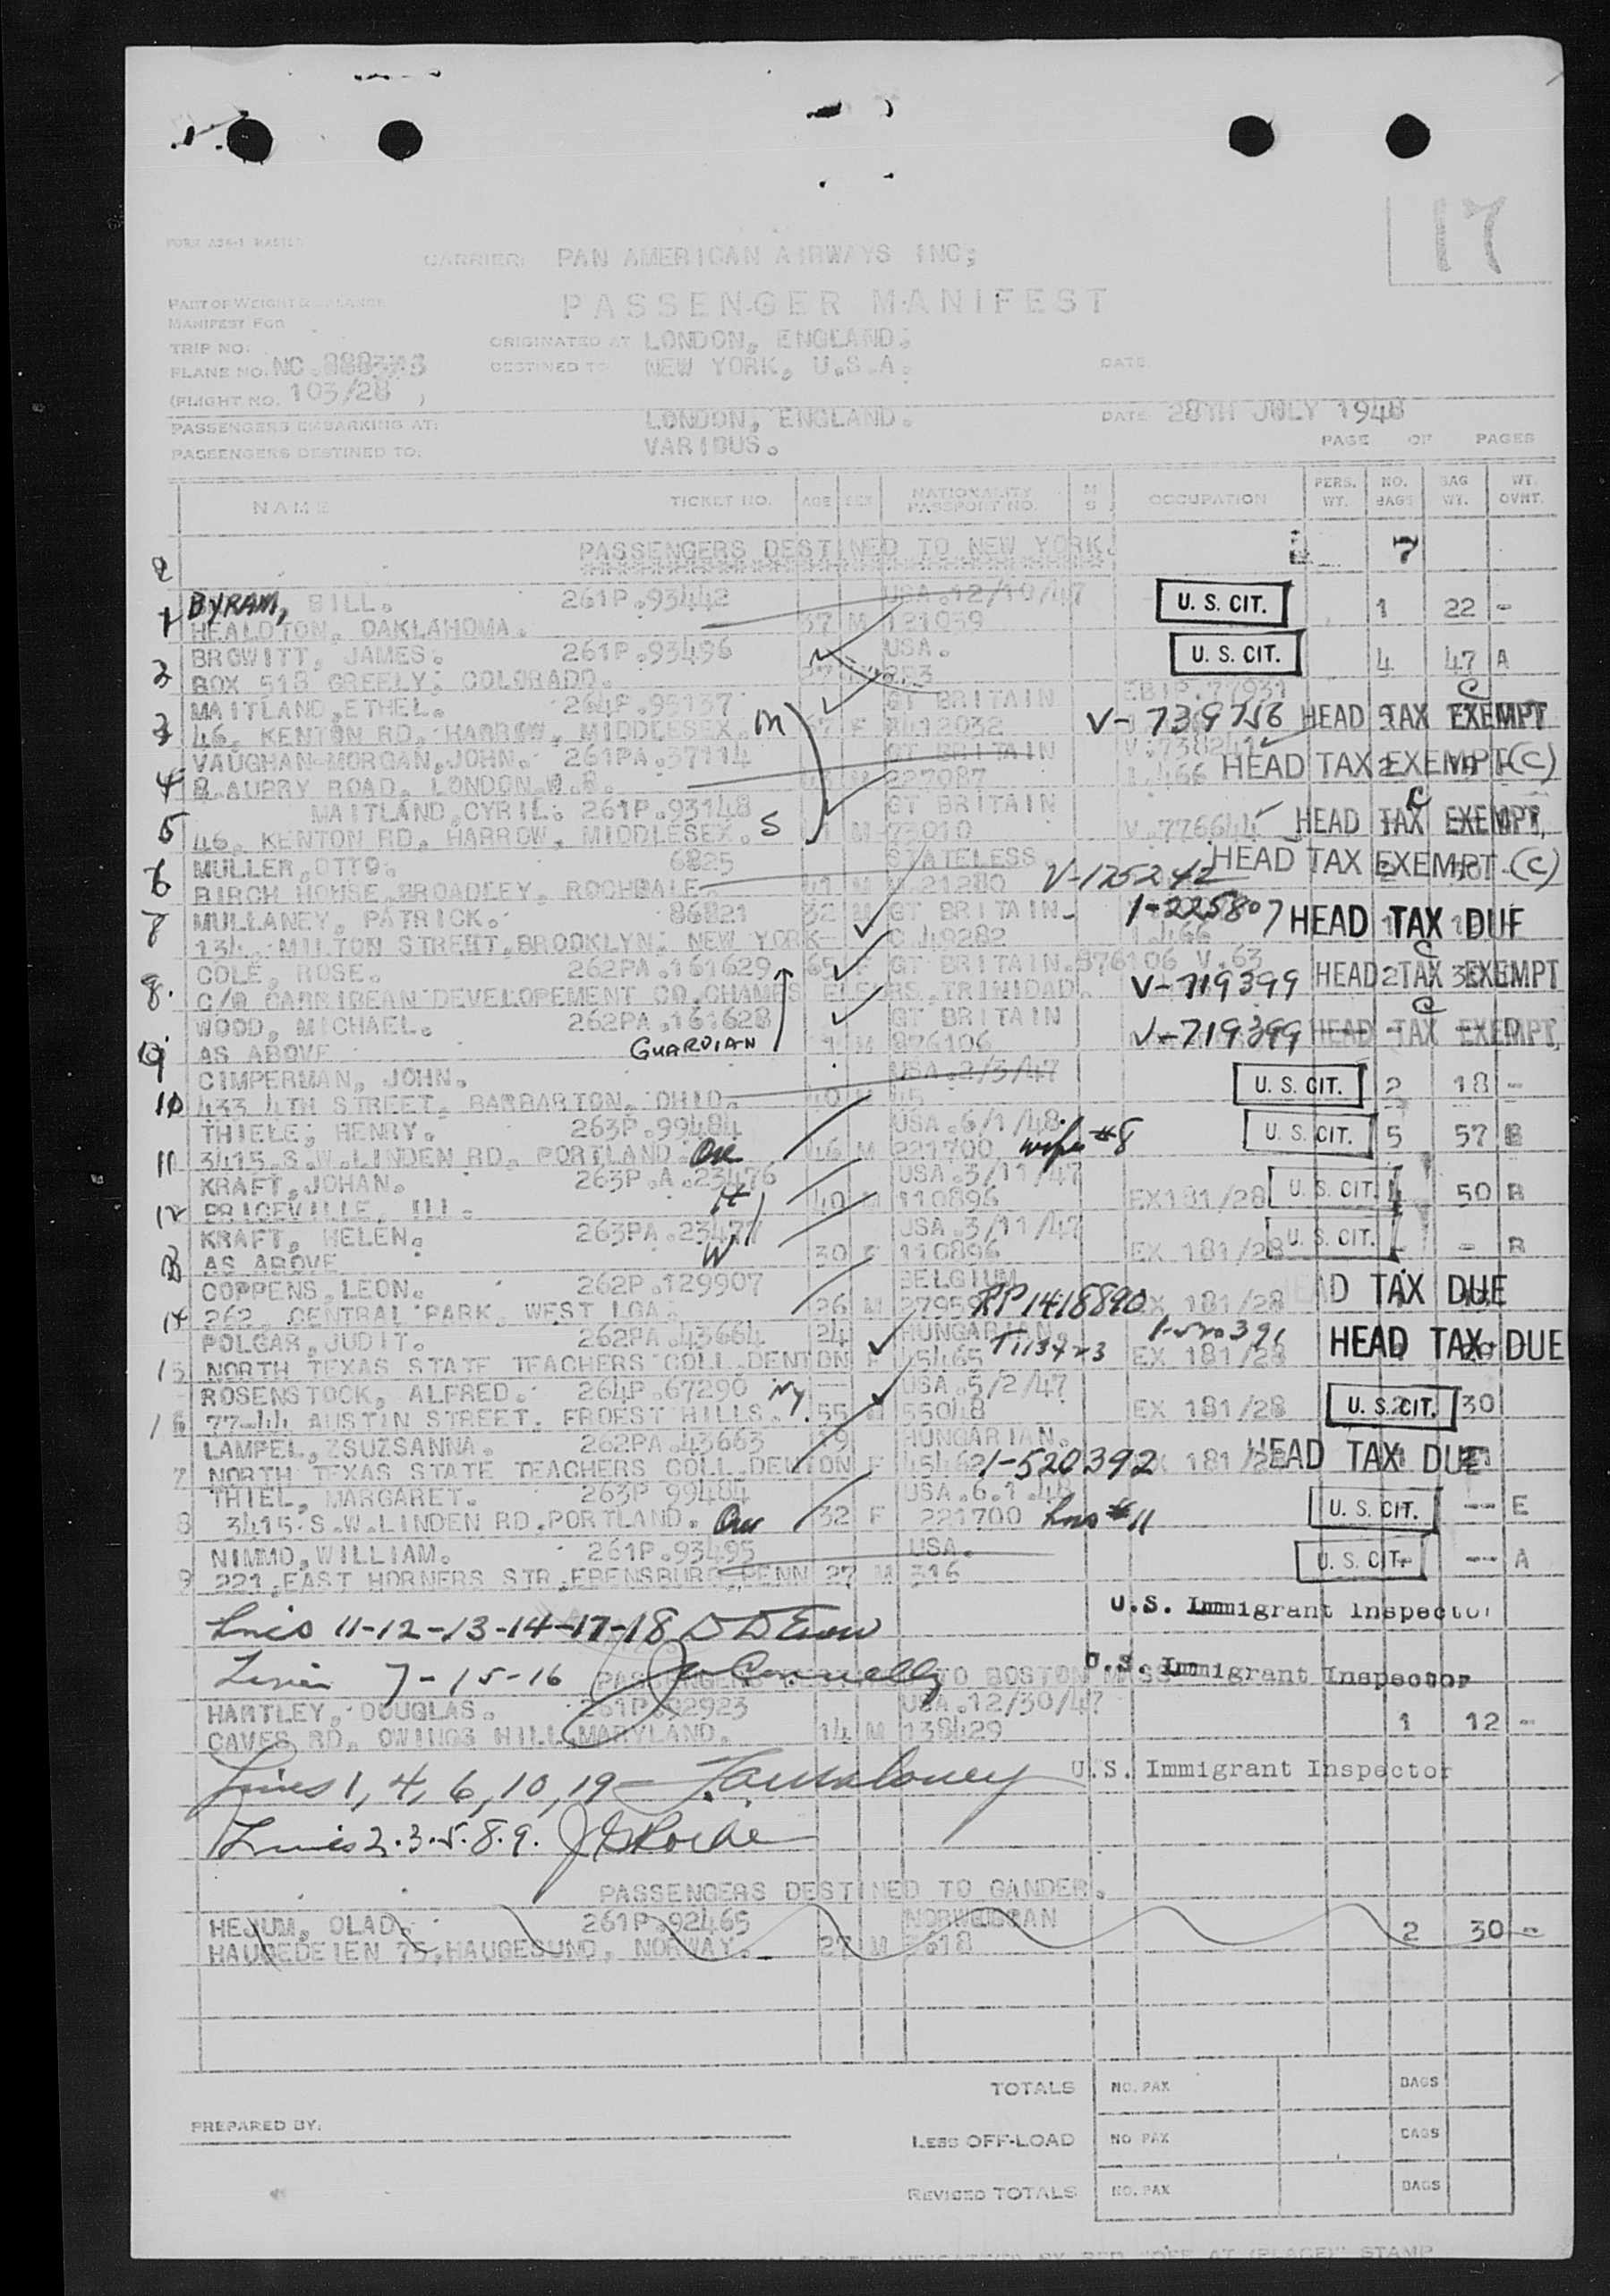 17
FORM
CARRIER: PAN AMERICAN AIRWAYS INC;
PART OF WEIGHT & BALANCE
PASSENGER MANIFEST
MANIFEST FOR
TRIP NO.
ORIGINATED AT LONDON, ENGLAND.
PLANE NO. NC.
DESTINED TO NEW YORK, U.S.A. DATE
(FLIGHT NO. 103/28 )
PASSENGERS EMBARKING AT: LONDON, ENGLAND. DATE 28TH JULY 1948
PASSENGERS DESTINED TO: VARIOUS. PAGE OF PAGES
NAME TICKET NO. AGE SEX NATIONALITY PASSPORT NO. M S OCCUPATION PERS. WT. NO. BAGS BAG WT. WT. OVNT.
PASSENGERS DESTINED TO NEW YORK. 7
2
BYRAM, BILL. 261P.93442 USA.12/10/47 U. S. CIT. 1 22 -
1 HEALDTON, OAKLAHOMA. 37 M 121059
BROWITT, JAMES. 261P.93496 USA. U. S. CIT. 4 47 A
BOX 518 GREELY; COLORADO. 253
MAITLAND,ETHEL. 264P.95137 GT BRITAIN C
46, KENTON RD, HARROW, MIDDLESEX. M F 412032 V-739756 HEAD TAX EXEMPT
VAUGHAN-MORGAN,JOHN. 261PA.37114 GT BRITAIN V.738241
4 8 AUBRY ROAD, LONDON.W.8. M 227087 1.466 HEAD TAX EXEMPT (C)
MAITLAND,CYRIL. 261P.93148 GT BRITAIN C
5 46, KENTON RD, HARROW, MIDDLESEX. S M 73010 V.776644 HEAD TAX EXEMPT
MULLER,OTTO. 6825 STATELESS. HEAD TAX EXEMPT (C)
6 BIRCH HOUSE BROADLEY, ROCHDALE 41 M 21280 V-125242
MULLANEY, PATRICK. 86821 32 M GT BRITAIN. 1-225807 HEAD TAX DUE
7 134, MILTON STREET,BROOKLYN. NEW YORK C.49282 1.466
COLE, ROSE. 262PA.161629 65 F GT BRITAIN.876106 V.63 C
8. C/O CARRIBEAN DEVELOPEMENT CO. TRINIDAD. V-719399 HEAD TAX EXEMPT
WOOD, MICHAEL. 262PA.161628 GT BRITAIN C
9 AS ABOVE GUARDIAN M 876106 V-719399 HEAD TAX EXEMPT
CIMPERMAN, JOHN. USA.2/3/47 U. S. CIT. 2 18 -
10 433 4TH STREET, BARBARTON, OHIO. 40 M 45
THIELE, HENRY. 263P.99484 USA.6/1/48. U. S. CIT. 5 57 E
11 3415.S.W.LINDEN RD. PORTLAND. Ore 46 M 221700 wife #8
KRAFT,JOHAN. 263P.A.23476 USA.3/11/47
12 PRICEVILLE, Ill. H 40 M 110896 EX181/28 U. S. CIT. 50 B
KRAFT, HELEN. 263PA.23477 USA.3/11/47
AS ABOVE W 30 F 110896 EX 181/28 U. S. CIT. - B
COPPENS,LEON. 262P.129907 BELGIUM
14 262, CENTRAL PARK, WEST 26 M RP1418890 EX 181/28 HEAD TAX DUE
POLGAR,JUDIT. 262PA.43664 24 HUNGARIAN
15 NORTH TEXAS STATE TEACHERS COLL.DENTON F 45465 EX 181/28 HEAD TAX DUE
ROSENSTOCK, ALFRED. 264P.67290 NY USA.5/2/47
16 77-44 AUSTIN STREET. FROEST HILLS. 55 M 55048 EX 181/28 U. S. CIT. 30
LAMPEL,ZSUZSANNA. 262PA.43663 HUNGARIAN.
7 NORTH TEXAS STATE TEACHERS COLL.DENTON F 1-520392 181/28 HEAD TAX DUE
THIEL, MARGARET. 263P 99484 USA.6.1.48
8 3415.S.W.LINDEN RD.PORTLAND. Ore 32 F 221700 #11 U. S. CIT. -- E
NIMMO,WILLIAM. 261P.93495 USA.
9 221,EAST HORNERS STR,EBENSBURG,PENN 27 M 316 U. S. CIT. -- A
Lines 11-12-13-14-17-18 U.S. Immigrant Inspector
Lines 7-15-16 J Connolly U.S. Immigrant Inspector
PASSENGERS TO BOSTON
HARTLEY, DOUGLAS. 261P.92923 USA.12/30/47
CAVES RD, OWINGS HILL,MARYLAND. 14 M 138429 1 12 -
Lines 1, 4, 6, 10, 19 U.S. Immigrant Inspector
Lines 2.3.5.8.9.
PASSENGERS DESTINED TO GANDER.
HEJUM, OLAD. 261P.92465 NORWEGIAN 2 30 -
HAUGEDEIEN 75,HAUGESUND, NORWAY. 27 M 3618
TOTALS NO. PAX BAGS
PREPARED BY:
LESS OFF-LOAD NO PAX BAGS
REVISED TOTALS NO. PAX BAGS